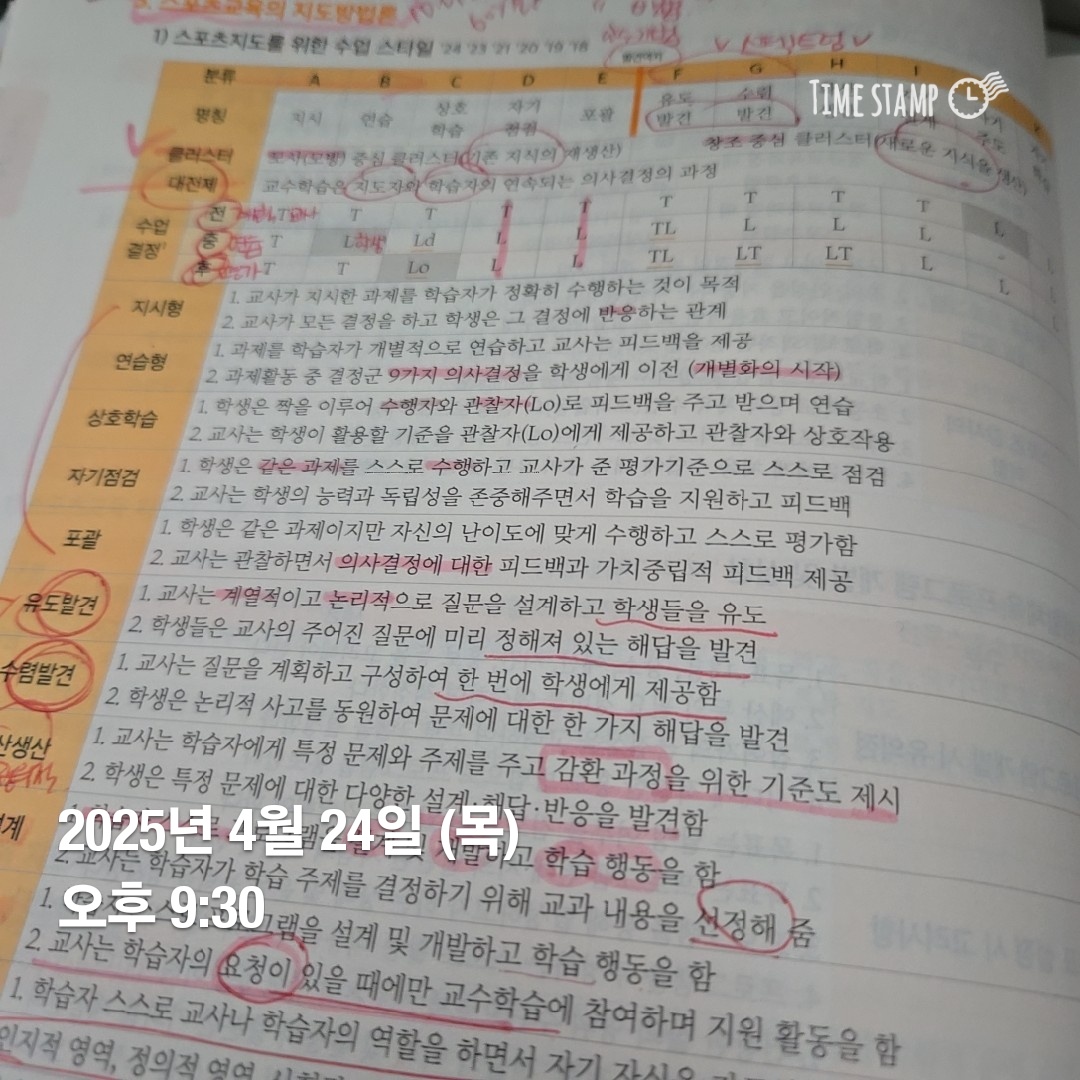 3. 스포츠교육의 지도방법론
1) 스포츠지도를 위한 수업 스타일 '24 '23 '21 '20 '19 '18
TIME STAMP
분류 A B C D E F G H I
명칭 지시 연습 상호학습 자기점검 포괄 유도발견 수렴발견
클러스터 모사(모방) 중심 클러스터(기존 지식의 재생산) 창조 중심 클러스터(새로운 지식을 생산)
대전제 교수학습은 지도자와 학습자의 연속되는 의사결정의 과정
수업결정 전 T T T T T T T T T L
중 T L 학생 Ld L L TL L L L
후 T T Lo L L TL LT LT L L
지시형 1. 교사가 지시한 과제를 학습자가 정확히 수행하는 것이 목적
2. 교사가 모든 결정을 하고 학생은 그 결정에 반응하는 관계
연습형 1. 과제를 학습자가 개별적으로 연습하고 교사는 피드백을 제공
2. 과제활동 중 결정군 9가지 의사결정을 학생에게 이전 (개별화의 시작)
상호학습 1. 학생은 짝을 이루어 수행자와 관찰자(Lo)로 피드백을 주고 받으며 연습
2. 교사는 학생이 활용할 기준을 관찰자(Lo)에게 제공하고 관찰자와 상호작용
자기점검 1. 학생은 같은 과제를 스스로 수행하고 교사가 준 평가기준으로 스스로 점검
2. 교사는 학생의 능력과 독립성을 존중해주면서 학습을 지원하고 피드백
포괄 1. 학생은 같은 과제이지만 자신의 난이도에 맞게 수행하고 스스로 평가함
2. 교사는 관찰하면서 의사결정에 대한 피드백과 가치중립적 피드백 제공
유도발견 1. 교사는 계열적이고 논리적으로 질문을 설계하고 학생들을 유도
2. 학생들은 교사의 주어진 질문에 미리 정해져 있는 해답을 발견
수렴발견 1. 교사는 질문을 계획하고 구성하여 한 번에 학생에게 제공함
2. 학생은 논리적 사고를 동원하여 문제에 대한 한 가지 해답을 발견
산생산 1. 교사는 학습자에게 특정 문제와 주제를 주고 감환 과정을 위한 기준도 제시
2. 학생은 특정 문제에 대한 다양한 설계·해답·반응을 발견함
개발하고 학습 행동을 함
2. 교사는 학습자가 학습 주제를 결정하기 위해 교과 내용을 선정해 줌
설계 및 개발하고 학습 행동을 함
2. 교사는 학습자의 요청이 있을 때에만 교수학습에 참여하며 지원 활동을 함
1. 학습자 스스로 교사나 학습자의 역할을 하면서 자기 자신을
인지적 영역, 정의적 영역
2025년 4월 24일 (목)
오후 9:30